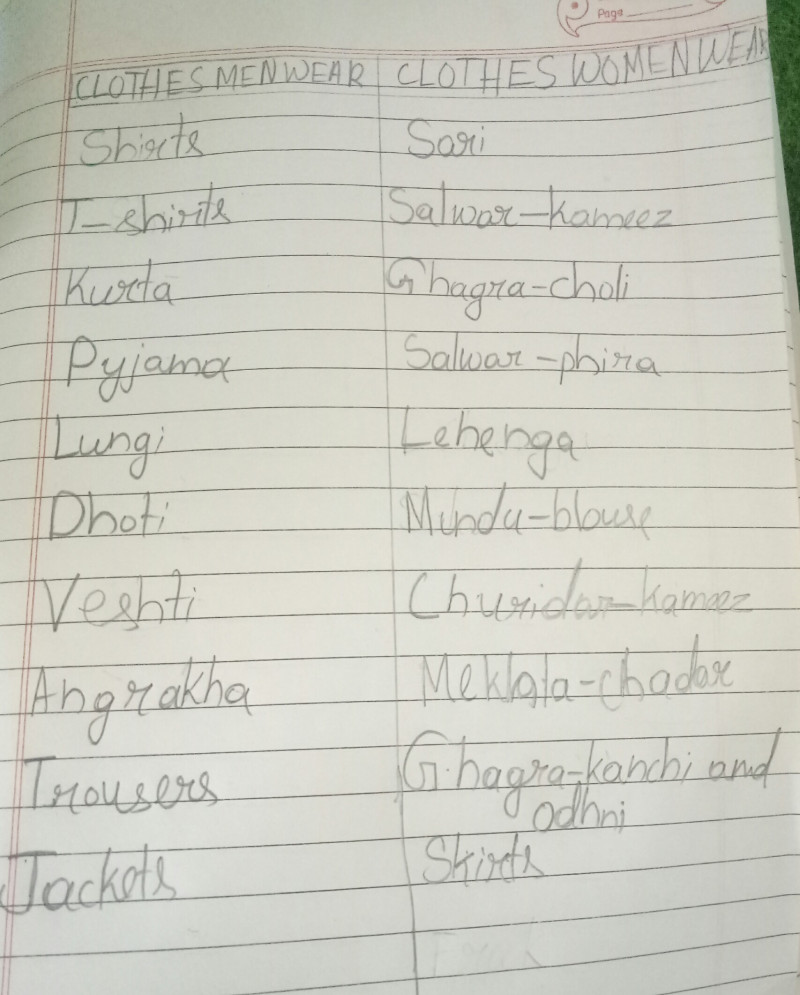 Page
CLOTHES MEN WEAR CLOTHES WOMEN WEAR
Shirts Sari
T-shirts Salwar-kameez
Kurta Ghagra-choli
Pyjama Salwar-phira
Lungi Lehenga
Dhoti Mundu-blouse
Veshti Churidar-kameez
Angrakha Meklala-chadar
Trousers Ghagra-kanchi and
odhni
Jackets Skirts